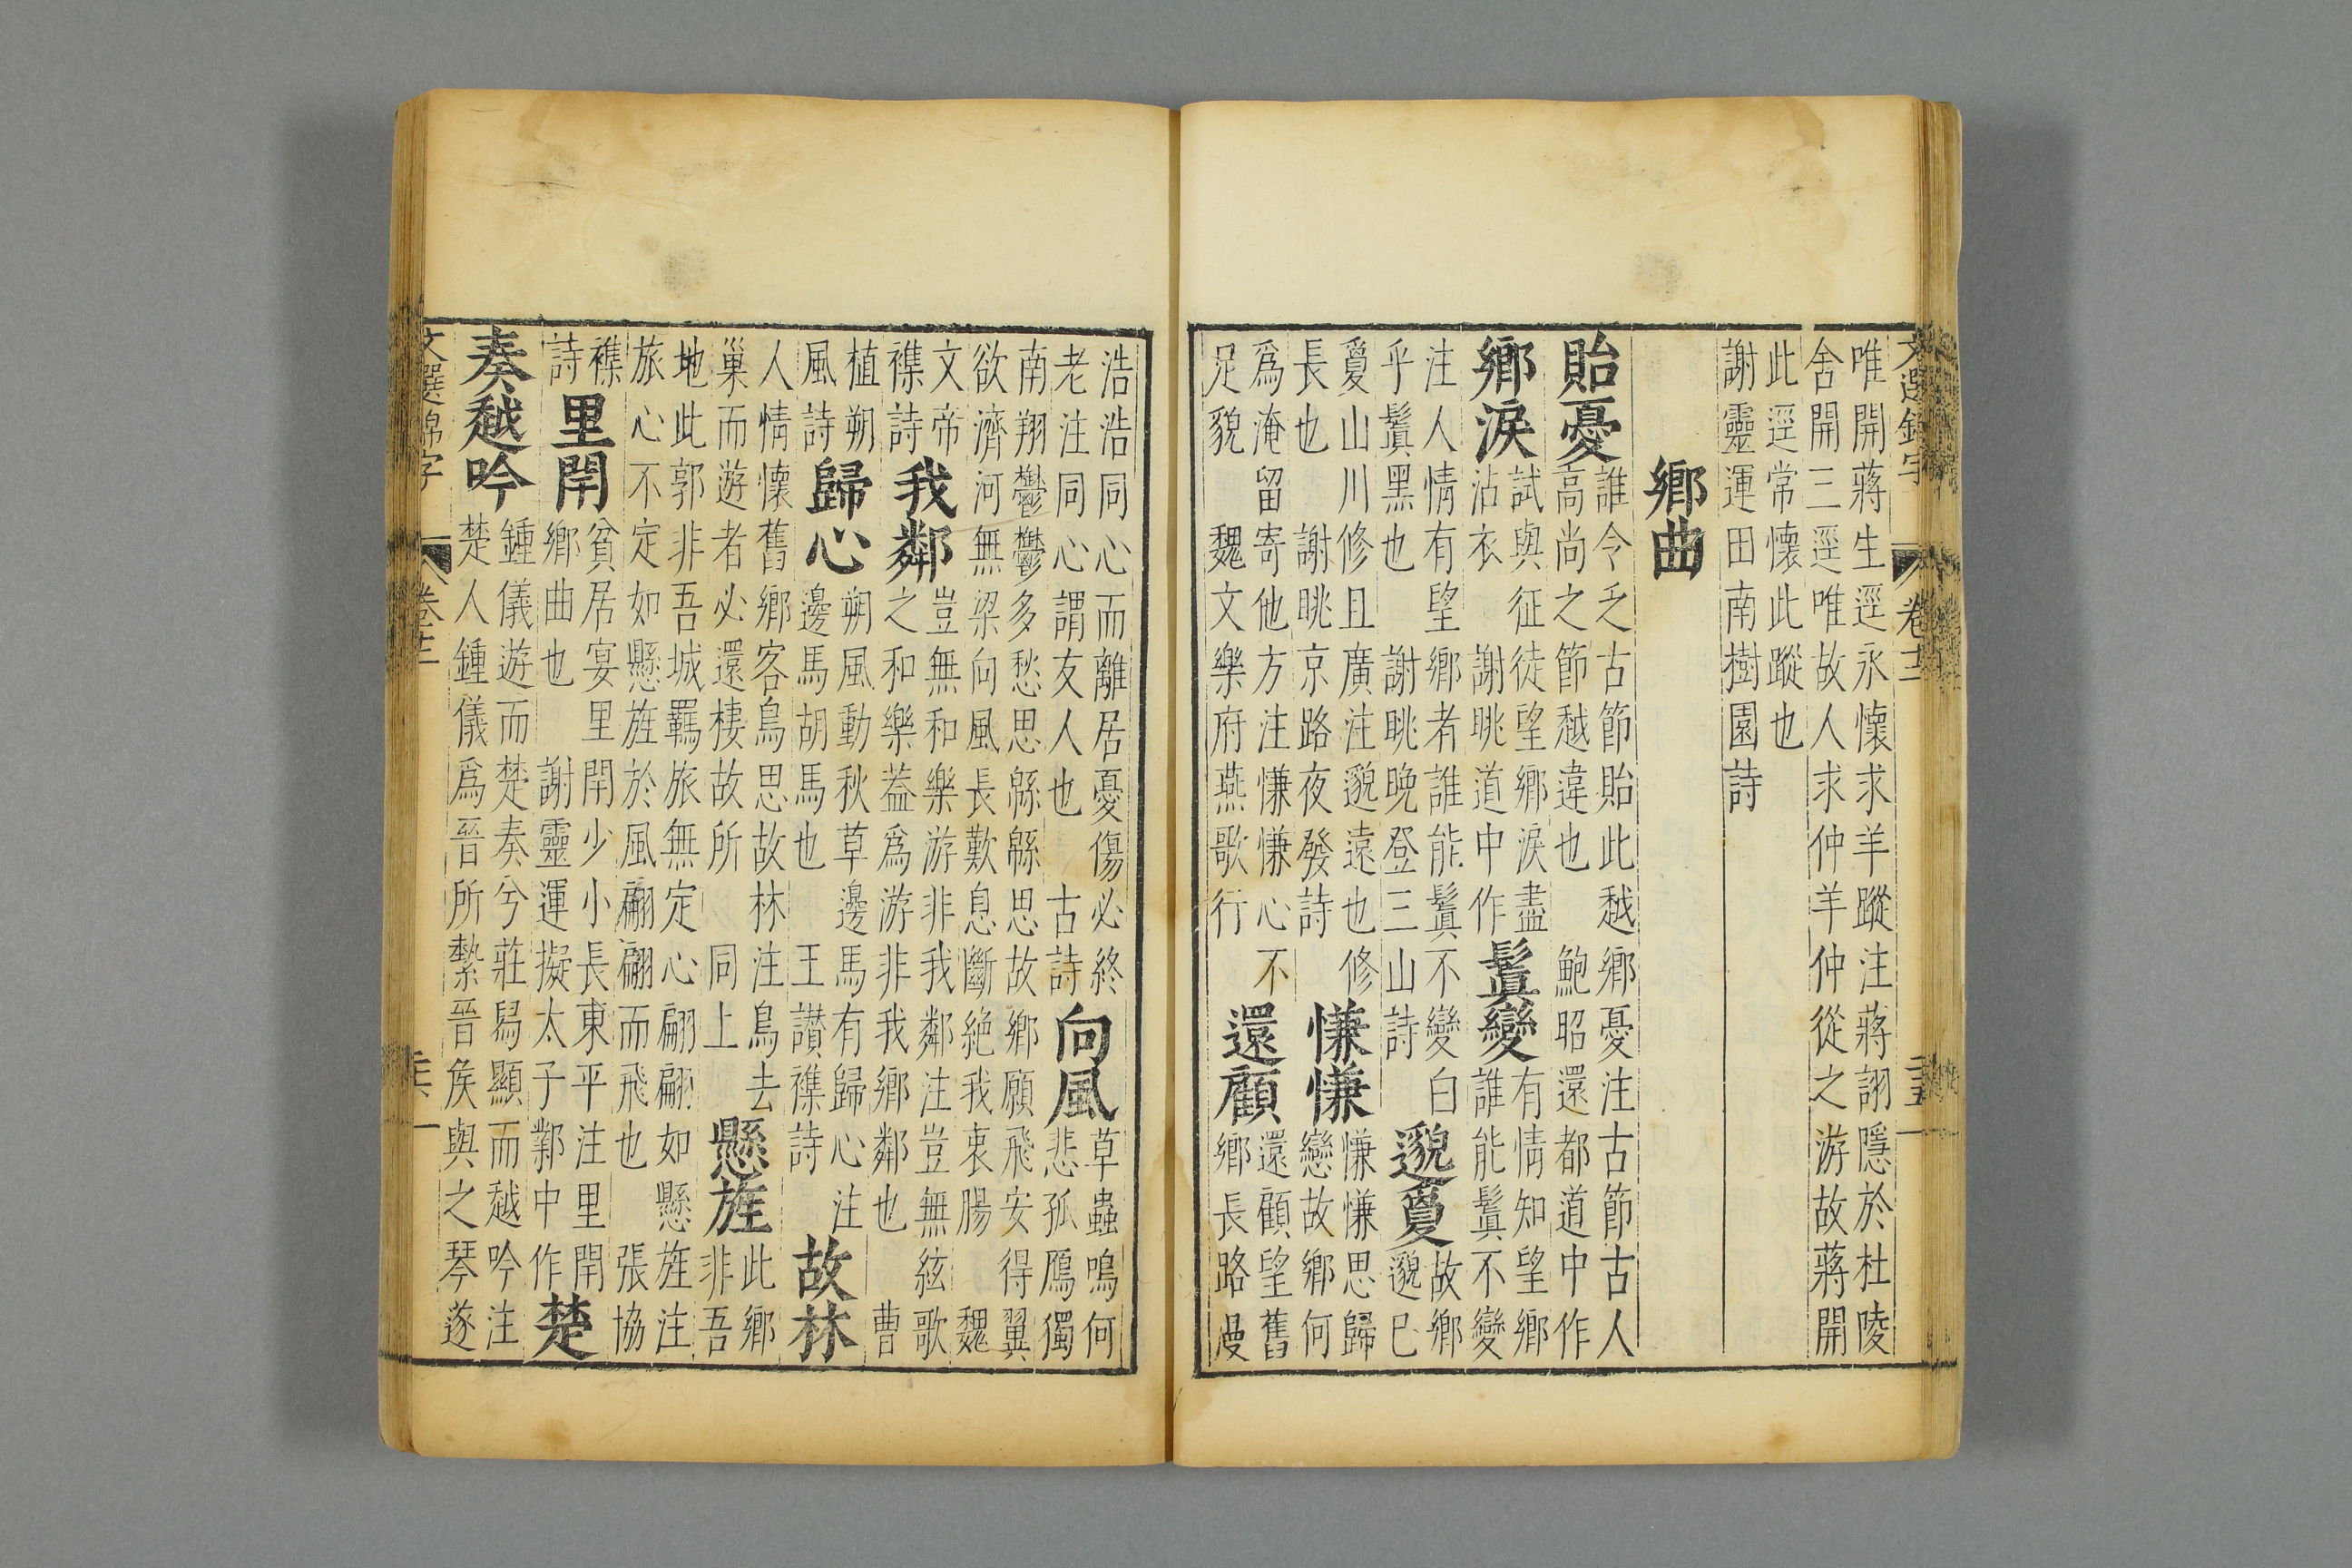 文選錦字 卷十二
唯開蔣生逕永懷求羊蹤注蔣詡隱於杜陵
舍開三逕唯故人求仲羊仲從之游故蔣開
此逕常懷此蹤也
謝靈運田南樹園詩
鄉曲
貽憂
誰令乏古節貽此越鄉憂注古節古人
高尚之節越違也 鮑昭還都道中作
鄉淚
試與征徒望鄉淚盡
沾衣 謝眺道中作
鬒變
有情知望鄉
誰能鬒不變
注人情有望鄉者誰能鬒不變白
乎鬒黑也 謝眺晚登三山詩
邈夐
故鄉
邈已
夐山川修且廣注邈遠也修
長也 謝眺京路夜發詩
慊慊
慊慊思歸
戀故鄉何
爲淹留寄他方注慊慊心不
足貌 魏文樂府燕歌行
還顧
還顧望舊
鄉長路漫
浩浩同心而離居憂傷必終
老注同心謂友人也 古詩
向風
草蟲鳴何
悲孤鴈獨
南翔鬱鬱多愁思緜緜思故鄉願飛安得翼
欲濟河無梁向風長歎息斷絶我衷腸 魏
文帝
襍詩
我鄰
豈無和樂游非我鄰注豈無絃歌
之和樂葢爲游非我鄉鄰也 曹
植朔
風詩
歸心
朔風動秋草邊馬有歸心注
邊馬胡馬也 王讃襍詩
故林
人情懷舊鄉客鳥思故林注鳥去
巢而遊者必還棲故所 同上
懸旌
此鄉
非吾
地此郭非吾城羇旅無定心翩翩如懸旌注
旅心不定如懸旌於風翩翩而飛也 張協
襍
詩
里閈
貧居宴里閈少小長東平注里閈
鄉曲也 謝靈運擬太子鄴中作
楚
奏越吟
鍾儀遊而楚奏兮莊舄顯而越吟注
楚人鍾儀爲晉所縶晉侯與之琴遂
文選錦字 卷十二